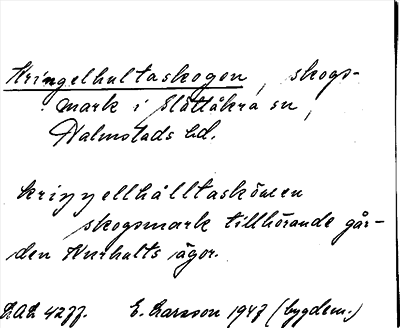 Kringelhultaskogen, skogs-
mark i Slättåkra sn,
Halmstads hd.
kriŋŋellhålltasköwen
skogsmark tillhörande går-
den Hurhalts ägor.
L.A.L. 4277. E. Larsson 1947 (bygdem.)